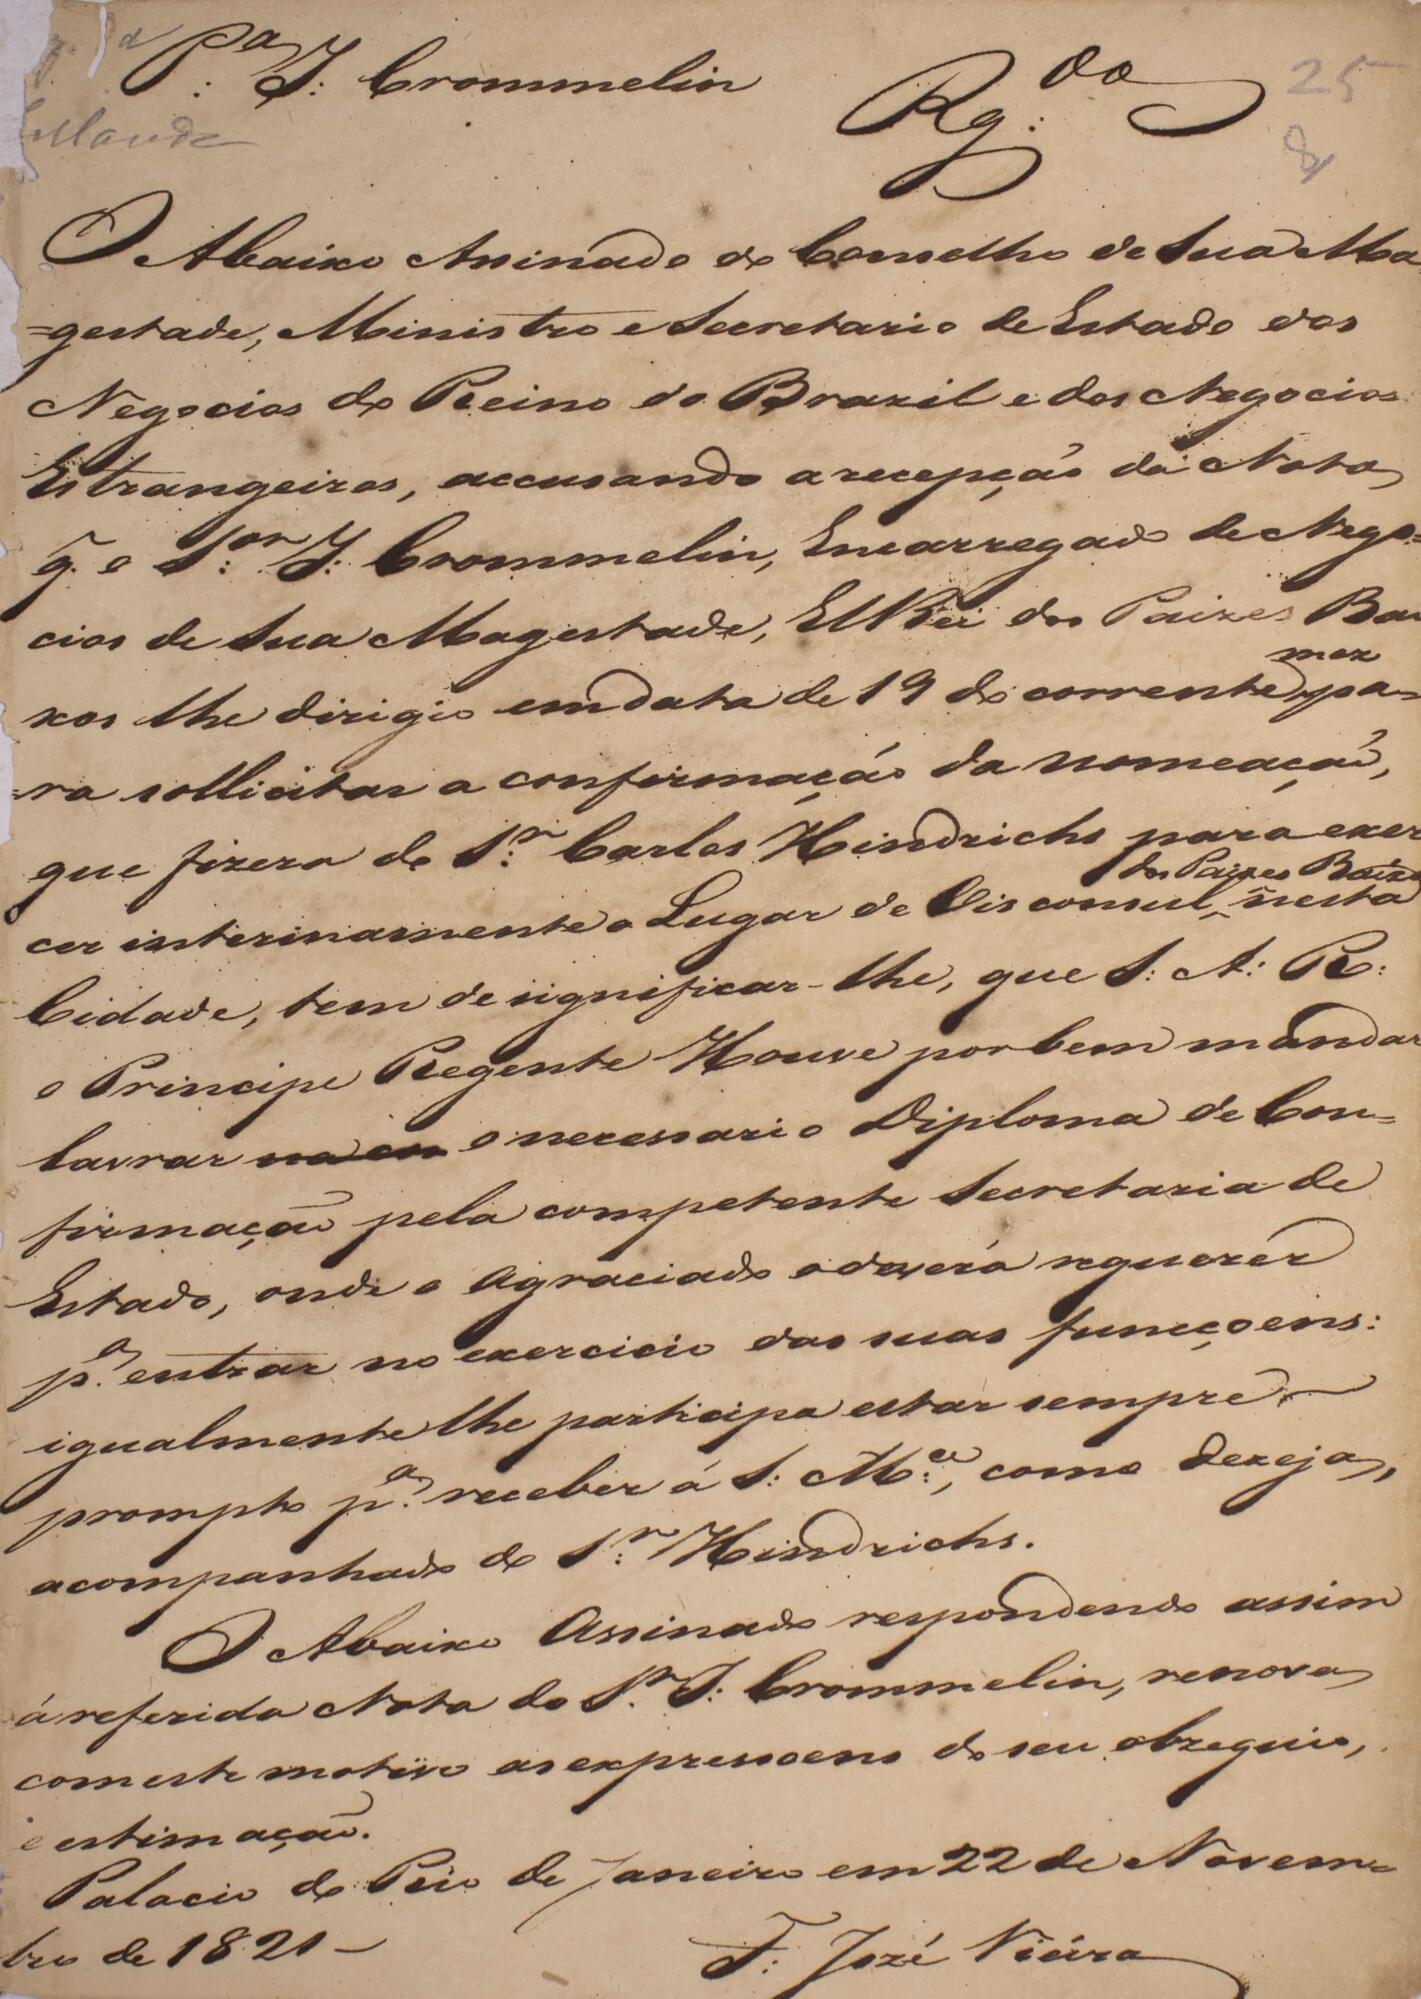 P.ª J: Crommelin
Rg:do
25
O Abaixo Assinado do Conselho de Sua Ma
=gestade, Ministro e Secretario de Estado dos
Negocios do Reino do Brazil e dos Negocios
Estrangeiros, accusando a recepção da Nota,
q̃. o S:or J: Crommelin, Encarregado de Nego=
cios de Sua Magestade, ElRei dos Paizes Bai
xos lhe dirigio em data de 19 do corrente mez pa=
=ra sollicitar a confirmação da nomeação,
que fizera do S:r Carlos Hindrichs para exer
cer interinamente o Lugar de Visconsul dos Paizes Baixos nesta
Cidade, tem de significar-lhe, que S: A: R:
o Principe Regente Houve por bem mandar
lavrar o necessario Diploma de Con=
firmação pela competente Secretaria de
Estado, onde o Agraciado o deverá requerer
p.ª entrar no exercicio das suas funcçoens:
igualmente lhe participa estar sempre
prompto p.ª receber á S: M:ce, como dezeja,
acompanhado do S:r Hindrichs.
O Abaixo Assinado respondendo assim
á referida Nota do S.r J: Crommelin, renova
com este motivo as expressoens do seu obzequio,
e estimação.
Palacio do Rio de Janeiro em 22 de Novem=
bro de 1821 –
F: José Vieira